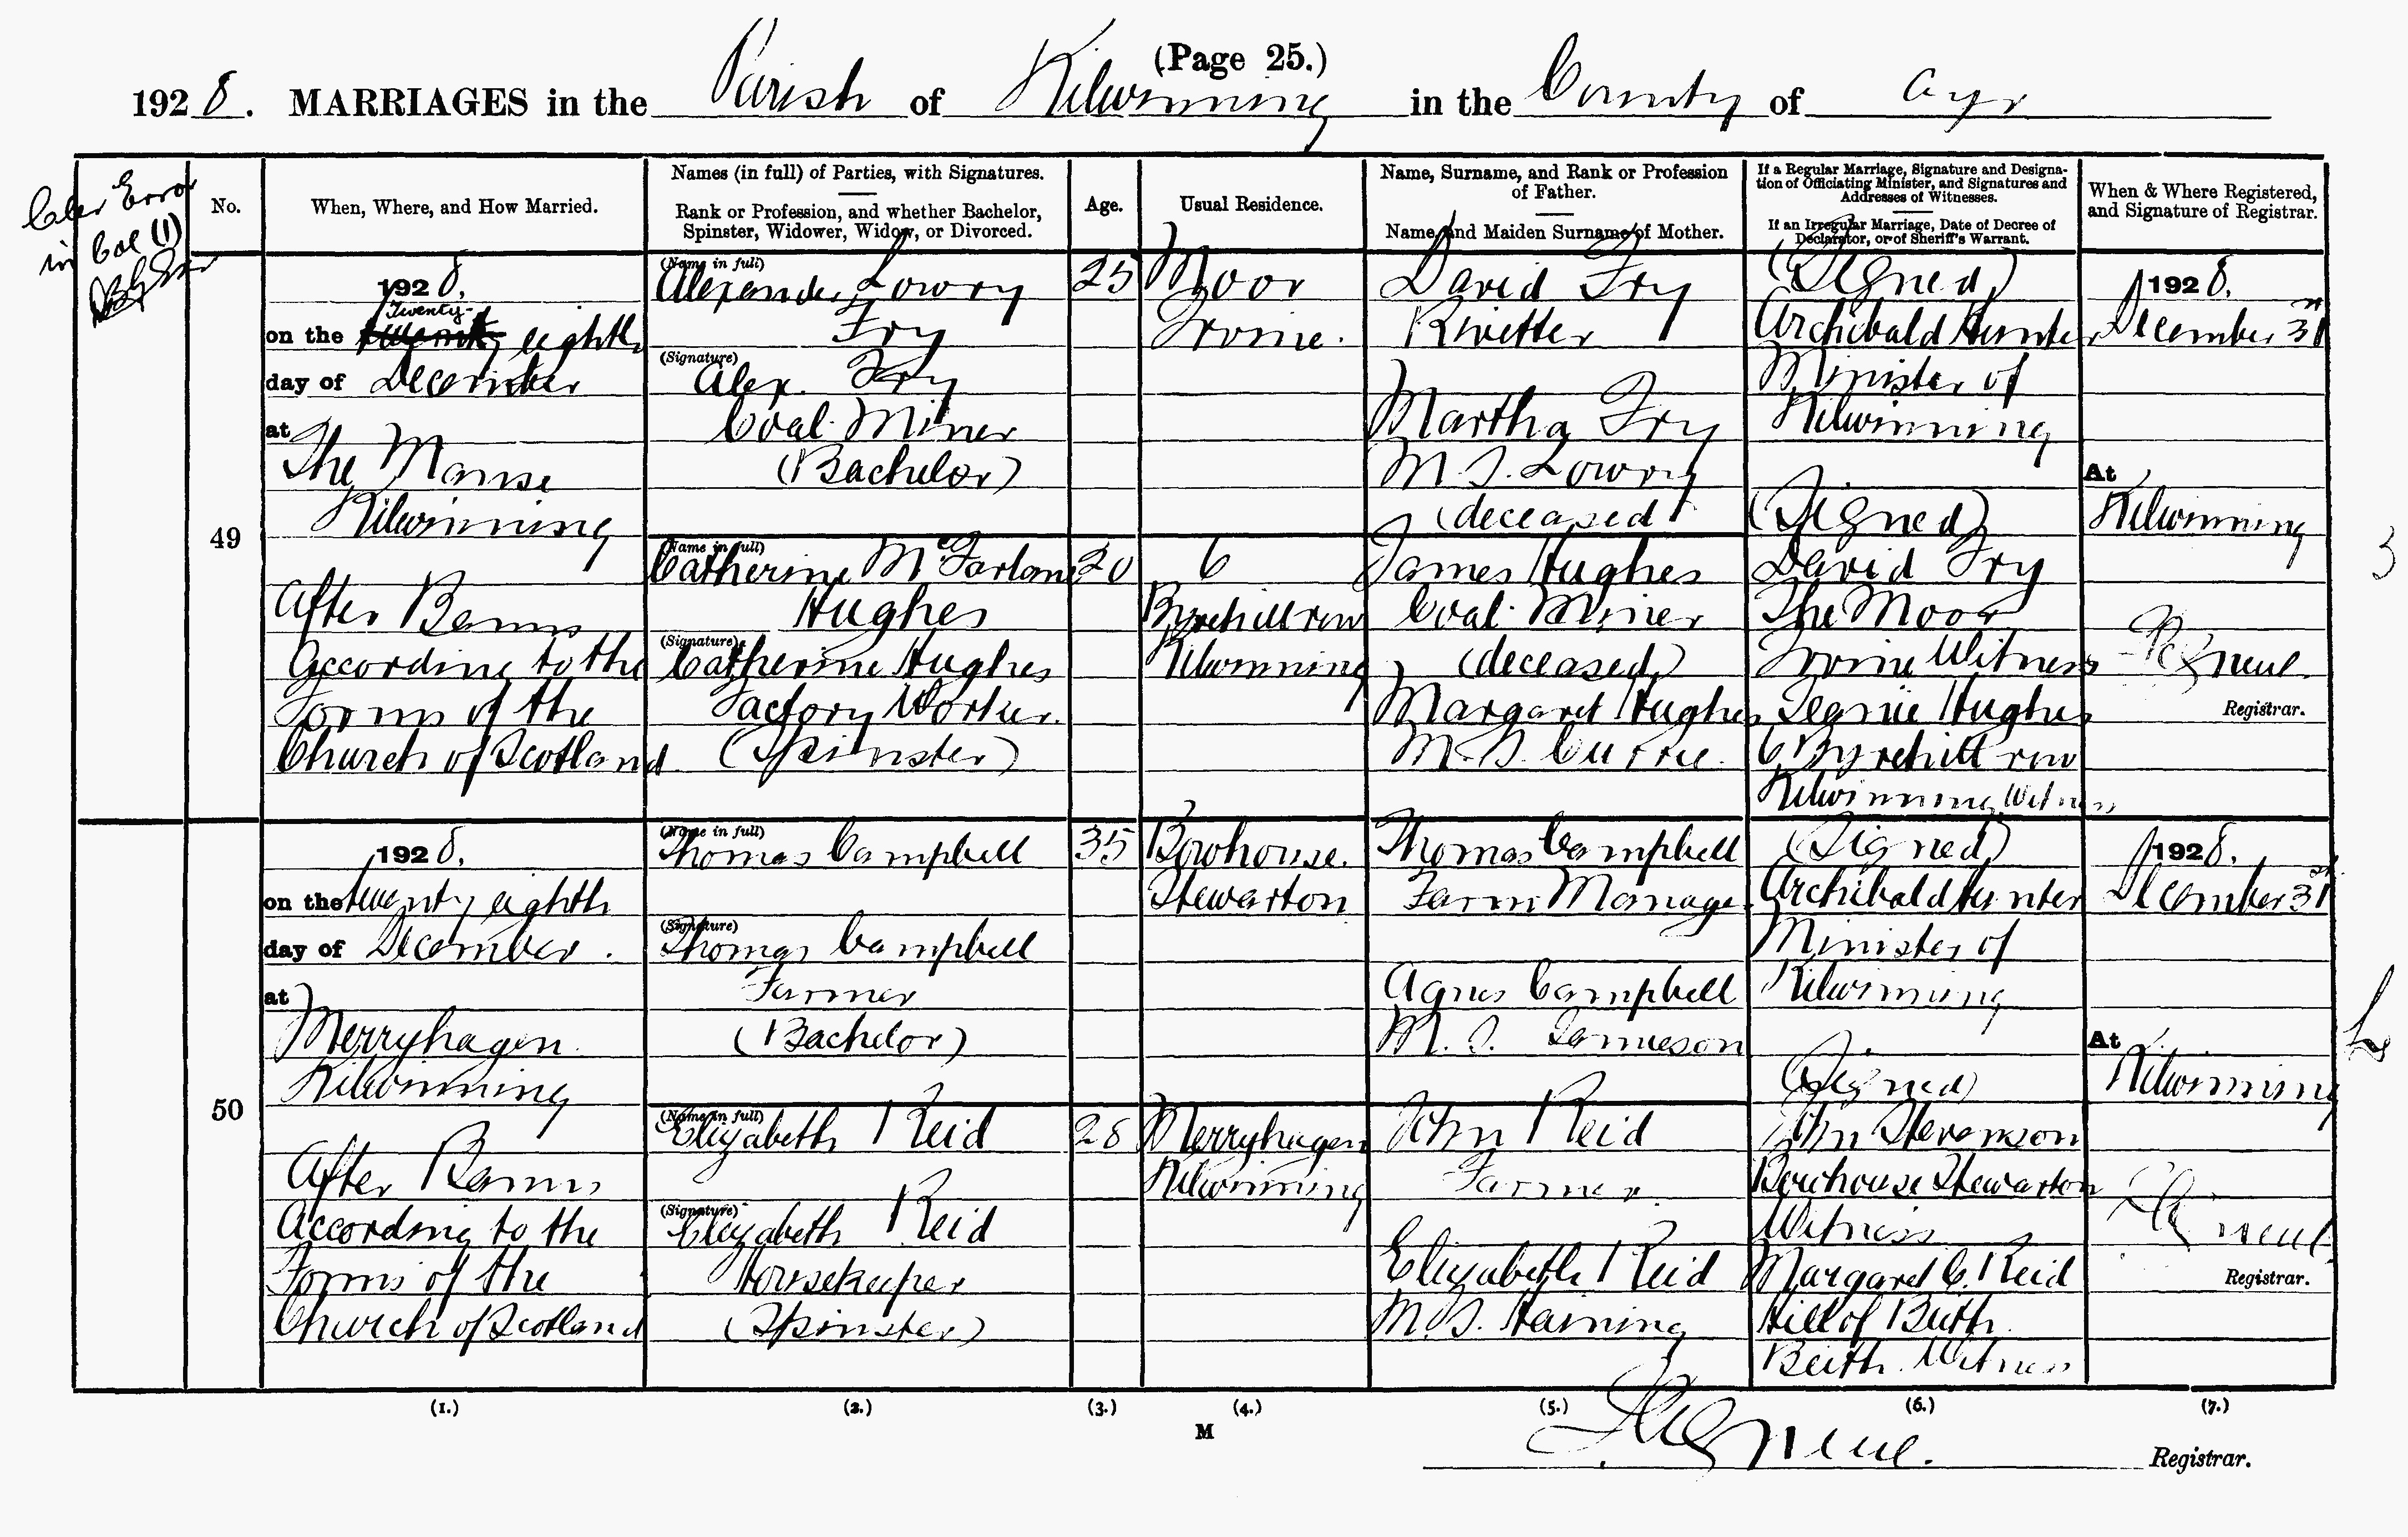 (Page 25.)
1928. MARRIAGES in the Parish of Kilwinning in the County of Ayr
Error
in Col (1)
No.
When, Where, and How Married.
Names (in full) of Parties, with Signatures.
Rank or Profession, and whether Bachelor,
Spinster, Widower, Widow, or Divorced.
Age.
Usual Residence.
Name, Surname, and Rank or Profession
of Father.
Name, and Maiden Surname of Mother.
If a Regular Marriage, Signature and Designa-
tion of Officiating Minister, and Signatures and
Addresses of Witnesses.
If an Irregular Marriage, Date of Decree of
Declarator, or of Sheriff's Warrant.
When & Where Registered,
and Signature of Registrar.
49
1928.
Twenty-
on the eighth
day of December
at
The Manse
Kilwinning
After Banns
According to the
Forms of the
Church of Scotland
(Name in full)
Alexander Lowry
Fry
(Signature)
Alex. Fry
Coal Miner
(Bachelor)
25
Moor
Irvine.
David Fry
Rivetter
Martha Fry
M.S. Lowry
(deceased)
(Name in full)
Catherine McFarlane
Hughes
(Signature)
Catherine Hughes
Factory Worker.
(Spinster)
20
6
Byrehill row
Kilwinning
James Hughes
Coal Miner
(deceased)
Margaret Hughes
M.S. Currie.
(Signed)
Archibald Hunter
Minister of
Kilwinning
(Signed)
David Fry
The Moor
Irvine Witness
Jeanie Hughes
6 Byrehill row
Kilwinning Witness
1928.
December 31st
At
Kilwinning
Registrar.
3
50
1928.
on the twenty eighth
day of December.
at
Merryhagen
Kilwinning
After Banns
According to the
Forms of the
Church of Scotland
(Name in full)
Thomas Campbell
(Signature)
Thomas Campbell
Farmer
(Bachelor)
35
Bowhouse.
Stewarton
Thomas Campbell
Farm Manager
Agnes Campbell
M.S. Jamieson
(Name in full)
Elizabeth Reid
(Signature)
Elizabeth Reid
Housekeeper
(Spinster)
28
Merryhagen
Kilwinning
John Reid
Farmer.
Elizabeth Reid
M.S. Haining
(Signed)
Archibald Hunter
Minister of
Kilwinning
(Signed)
John Stevenson
Bowhouse Stewarton
Witness
Margaret C. Reid
Hill of Beith
Beith Witness
1928.
December 31st
At
Kilwinning
Registrar.
(1.) (2.) (3.) (4.) (5.) (6.) (7.)
M
Registrar.